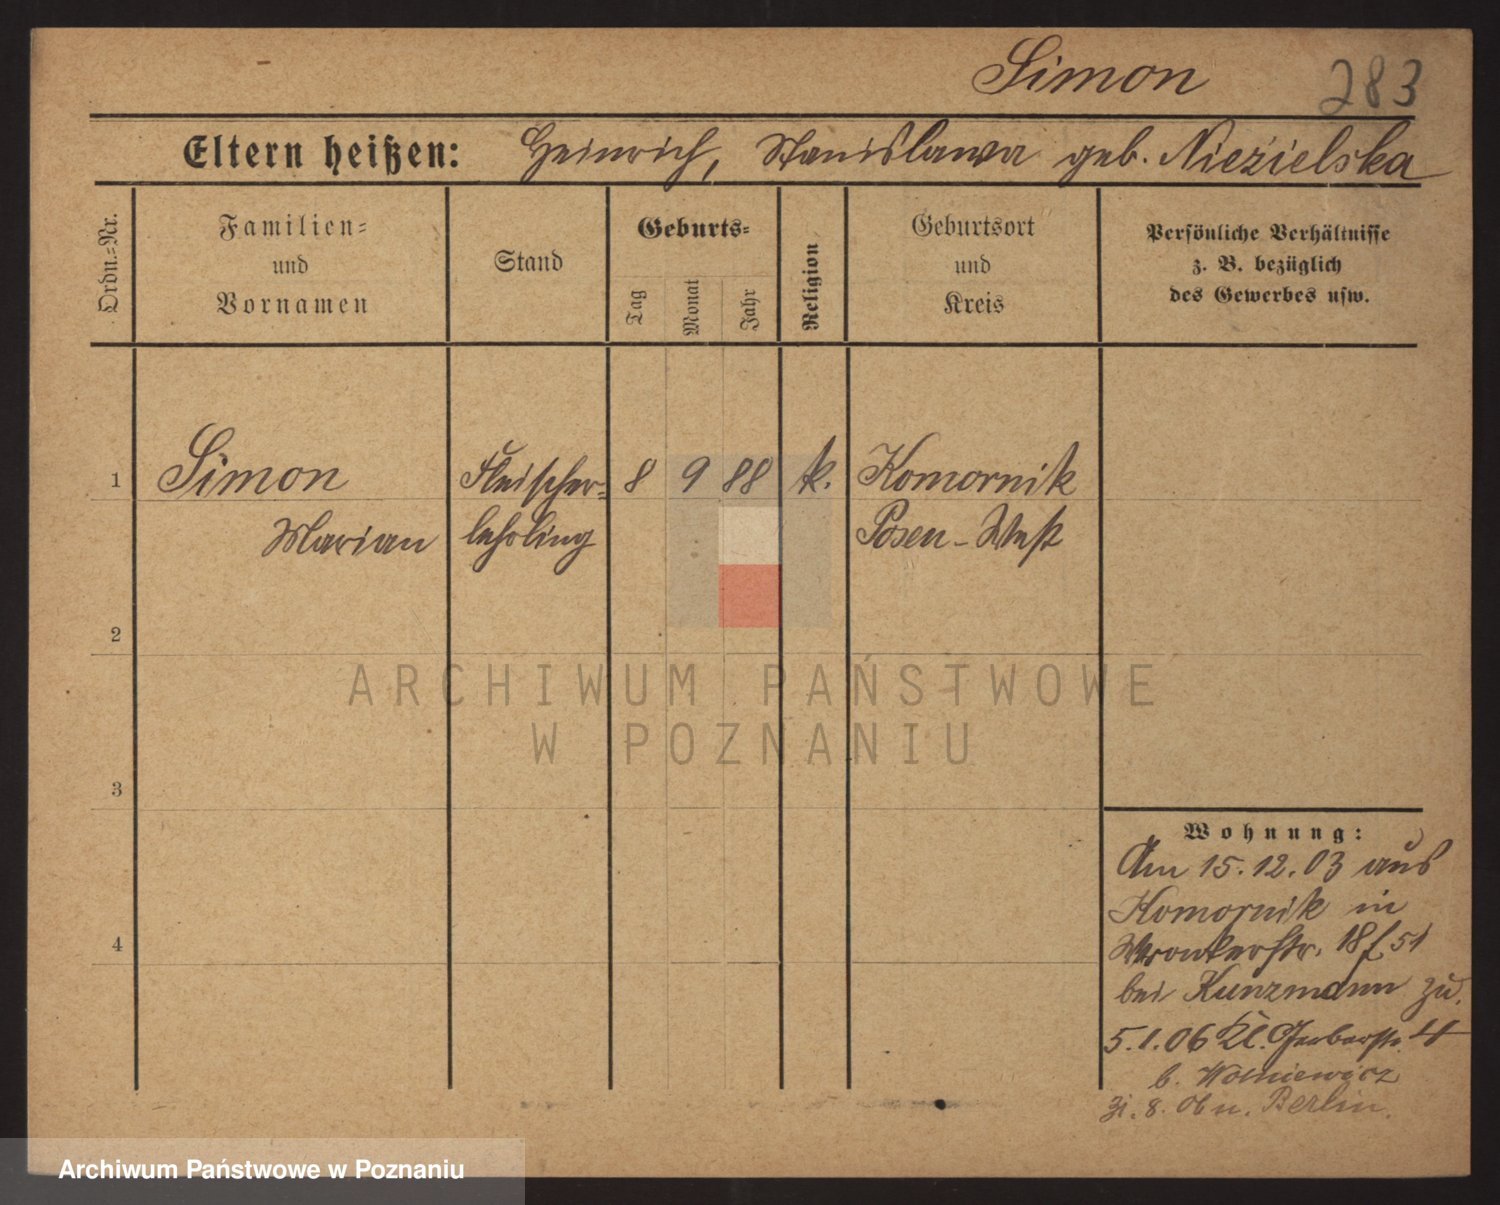 Simon 283
Eltern heißen: Heinrich, Stanislawa geb. Niezielska
Ordn.=Nr.
Familien=
und
Vornamen
Stand
Geburts=
Tag
Monat
Jahr
Religion
Geburtsort
und
Kreis
Persönliche Verhältnisse
z. B. bezüglich
des Gewerbes usw.
1 Simon Fleischer= 8 9 88 k. Komornik
Marian lehrling Posen - West
2
3
4
ARCHIWUM PAŃSTWOWE
W POZNANIU
Wohnung:
Am 15.12.03 aus
Komornik in
Wronkerstr. 18 f 51
bei Kunzmann zu.
5.1.06 Kl. Gerberstr. 4
b. Wolniewicz
31. 8. 06 n. Berlin.
Archiwum Państwowe w Poznaniu